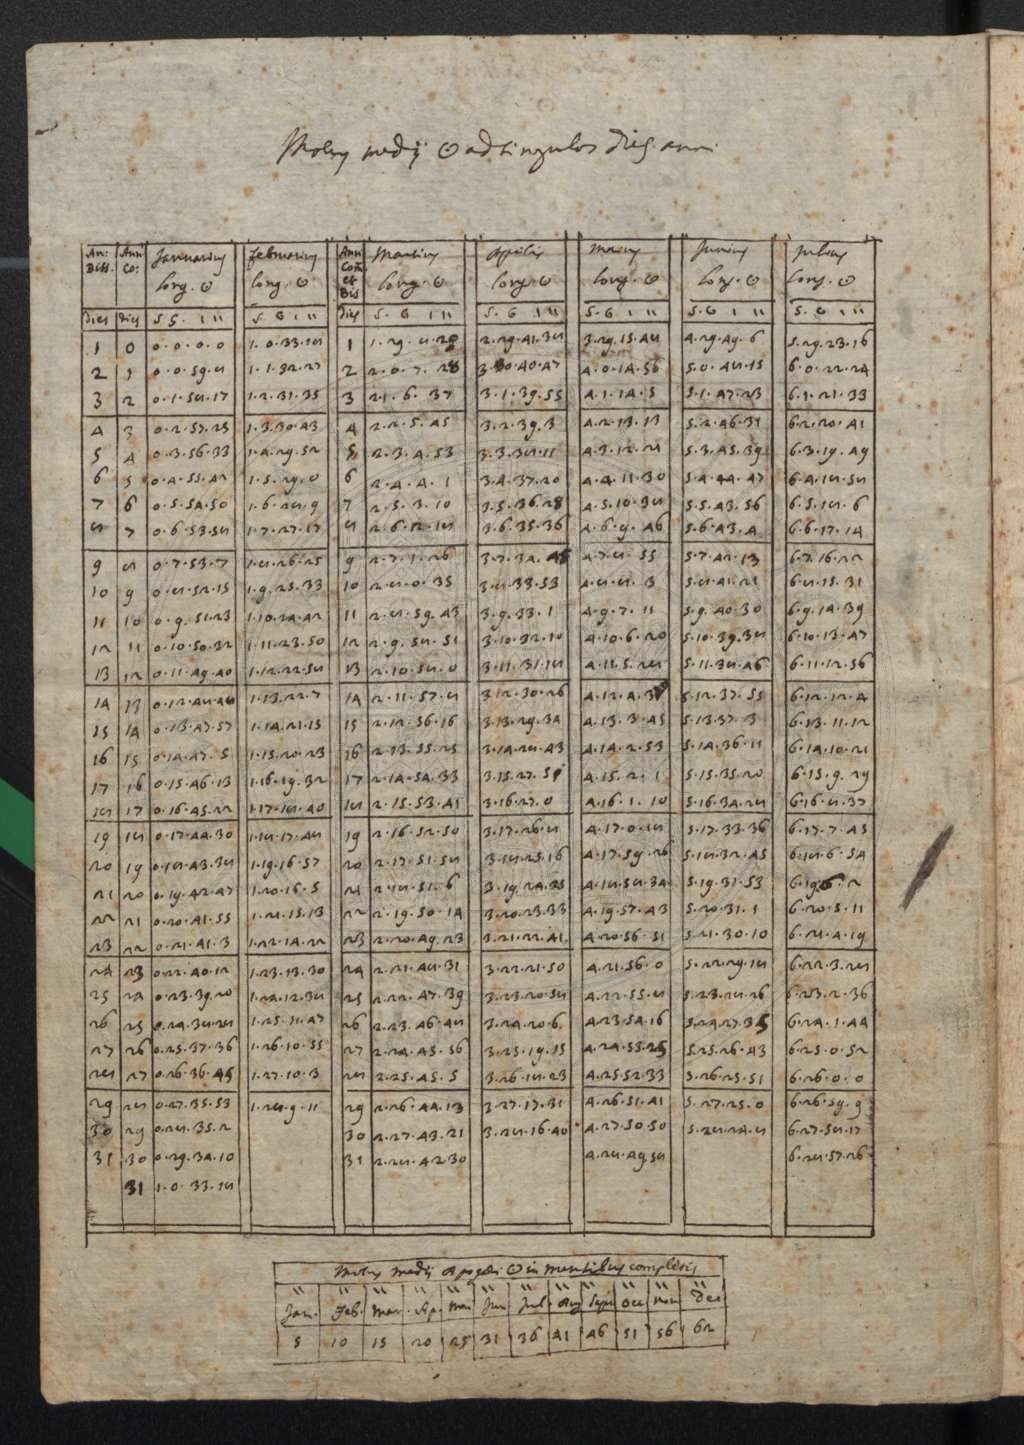 Motus medij ☉ ad singulos dies anni
An: Biss. | Anni Co: | Januarius Long. ☉ | februarius long. ☉ | Anni Com et Bis | Martius Long. ☉ | Aprilis Long. ☉ | Maius Long. ☉ | Junius Long. ☉ | Julius Long. ☉
dies | dies | S. G. ı ıı | S. G ı ıı | dies | S. G ı ıı | S. G ı ıı | S. G ı ıı | S. G ı ıı | S. G ı ıı
1 | 0 | 0.0.0.0 | 1.0.33.18 | 1 | 1.29.8.20 | 2.29.41.38 | 3.29.15.48 | 4.29.49.6 | 5.29.23.16
2 | 1 | 0.0.59.8 | 1.1.32.27 | 2 | 2.0.7.28 | 3.0.40.47 | 4.0.14.56 | 5.0.48.15 | 6.0.22.24
3 | 2 | 0.1.58.17 | 1.2.31.35 | 3 | 2.1.6.37 | 3.1.39.55 | 4.1.14.5 | 5.1.47.23 | 6.1.21.33
4 | 3 | 0.2.57.25 | 1.3.30.43 | 4 | 2.2.5.45 | 3.2.39.3 | 4.2.13.13 | 5.2.46.31 | 6.2.20.41
5 | 4 | 0.3.56.33 | 1.4.29.52 | 5 | 2.3.4.53 | 3.3.38.11 | 4.3.12.21 | 5.3.45.39 | 6.3.19.49
6 | 5 | 0.4.55.42 | 1.5.29.0 | 6 | 2.4.4.1 | 3.4.37.20 | 4.4.11.30 | 5.4.44.47 | 6.4.18.58
7 | 6 | 0.5.54.50 | 1.6.28.9 | 7 | 2.5.3.10 | 3.5.36.28 | 4.5.10.38 | 5.5.43.56 | 6.5.18.6
8 | 7 | 0.6.53.58 | 1.7.27.17 | 8 | 2.6.2.18 | 3.6.35.36 | 4.6.9.46 | 5.6.43.4 | 6.6.17.14
9 | 8 | 0.7.53.7 | 1.8.26.25 | 9 | 2.7.1.26 | 3.7.34.45 | 4.7.8.55 | 5.7.42.13 | 6.7.16.22
10 | 9 | 0.8.52.15 | 1.9.25.33 | 10 | 2.8.0.35 | 3.8.33.53 | 4.8.8.3 | 5.8.41.21 | 6.8.15.31
11 | 10 | 0.9.51.23 | 1.10.24.42 | 11 | 2.8.59.43 | 3.9.33.1 | 4.9.7.11 | 5.9.40.30 | 6.9.14.39
12 | 11 | 0.10.50.32 | 1.11.23.50 | 12 | 2.9.58.51 | 3.10.32.10 | 4.10.6.20 | 5.10.39.38 | 6.10.13.47
13 | 12 | 0.11.49.40 | 1.12.22.58 | 13 | 2.10.58.0 | 3.11.31.18 | 4.11.5.28 | 5.11.38.46 | 6.11.12.56
14 | 13 | 0.12.48.48 | 1.13.22.7 | 14 | 2.11.57.8 | 3.12.30.26 | 4.12.4.37 | 5.12.37.55 | 6.12.12.4
15 | 14 | 0.13.47.57 | 1.14.21.15 | 15 | 2.12.56.16 | 3.13.29.34 | 4.13.3.45 | 5.13.37.3 | 6.13.11.12
16 | 15 | 0.14.47.5 | 1.15.20.23 | 16 | 2.13.55.25 | 3.14.28.43 | 4.14.2.53 | 5.14.36.11 | 6.14.10.21
17 | 16 | 0.15.46.13 | 1.16.19.32 | 17 | 2.14.54.33 | 3.15.27.51 | 4.15.2.1 | 5.15.35.20 | 6.15.9.29
18 | 17 | 0.16.45.22 | 1.17.18.40 | 18 | 2.15.53.41 | 3.16.27.0 | 4.16.1.10 | 5.16.34.28 | 6.16.8.37
19 | 18 | 0.17.44.30 | 1.18.17.48 | 19 | 2.16.52.50 | 3.17.26.8 | 4.17.0.18 | 5.17.33.36 | 6.17.7.45
20 | 19 | 0.18.43.38 | 1.19.16.57 | 20 | 2.17.51.58 | 3.18.25.16 | 4.17.59.26 | 5.18.32.45 | 6.18.6.54
21 | 20 | 0.19.42.47 | 1.20.16.5 | 21 | 2.18.51.6 | 3.19.24.25 | 4.18.58.34 | 5.19.31.53 | 6.19.6.2
22 | 21 | 0.20.41.55 | 1.21.15.13 | 22 | 2.19.50.14 | 3.20.23.33 | 4.19.57.43 | 5.20.31.1 | 6.20.5.11
23 | 22 | 0.21.41.3 | 1.22.14.22 | 23 | 2.20.49.23 | 3.21.22.41 | 4.20.56.51 | 5.21.30.10 | 6.21.4.19
24 | 23 | 0.22.40.12 | 1.23.13.30 | 24 | 2.21.48.31 | 3.22.21.50 | 4.21.56.0 | 5.22.29.18 | 6.22.3.28
25 | 24 | 0.23.39.20 | 1.24.12.38 | 25 | 2.22.47.39 | 3.23.20.58 | 4.22.55.8 | 5.23.28.26 | 6.23.2.36
26 | 25 | 0.24.38.28 | 1.25.11.47 | 26 | 2.23.46.48 | 3.24.20.6 | 4.23.54.16 | 5.24.27.35 | 6.24.1.44
27 | 26 | 0.25.37.36 | 1.26.10.55 | 27 | 2.24.45.56 | 3.25.19.15 | 4.24.53.25 | 5.25.26.43 | 6.25.0.52
28 | 27 | 0.26.36.45 | 1.27.10.3 | 28 | 2.25.45.5 | 3.26.18.23 | 4.25.52.33 | 5.26.25.51 | 6.26.0.0
29 | 28 | 0.27.35.53 | 1.28.9.11 | 29 | 2.26.44.13 | 3.27.17.31 | 4.26.51.41 | 5.27.25.0 | 6.26.59.9
30 | 29 | 0.28.35.2 | | 30 | 2.27.43.21 | 3.28.16.40 | 4.27.50.50 | 5.28.24.8 | 6.27.58.17
31 | 30 | 0.29.34.10 | | 31 | 2.28.42.30 | | 4.28.49.58 | | 6.28.57.26
31 | 1.0.33.18
Motus medij Apogæi ☉ in mensibus completis
ıı | ıı | ıı | ıı | ıı | ıı | ıı | ıı | ıı | ıı | ıı | ıı
Jan. | Feb. | Mar. | Ap. | Mai | Jun | Jul. | Aug | Sept | Oct | Nov | Dec
5 | 10 | 15 | 20 | 25 | 31 | 36 | 41 | 46 | 51 | 56 | 62